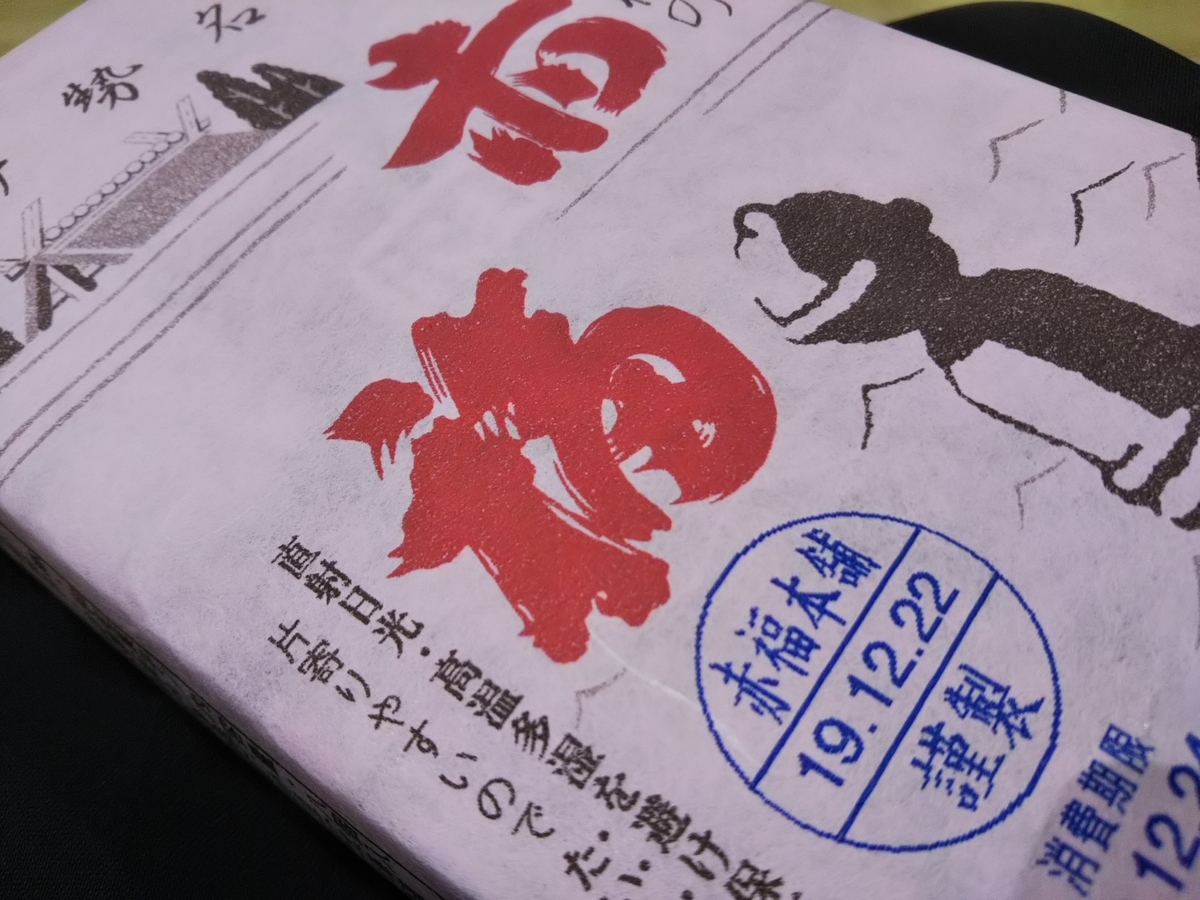 勢 知
赤福
直射日光・高温多湿を避け保
片寄りやすいので
赤福本舗
19.12.22
謹製
消費期限